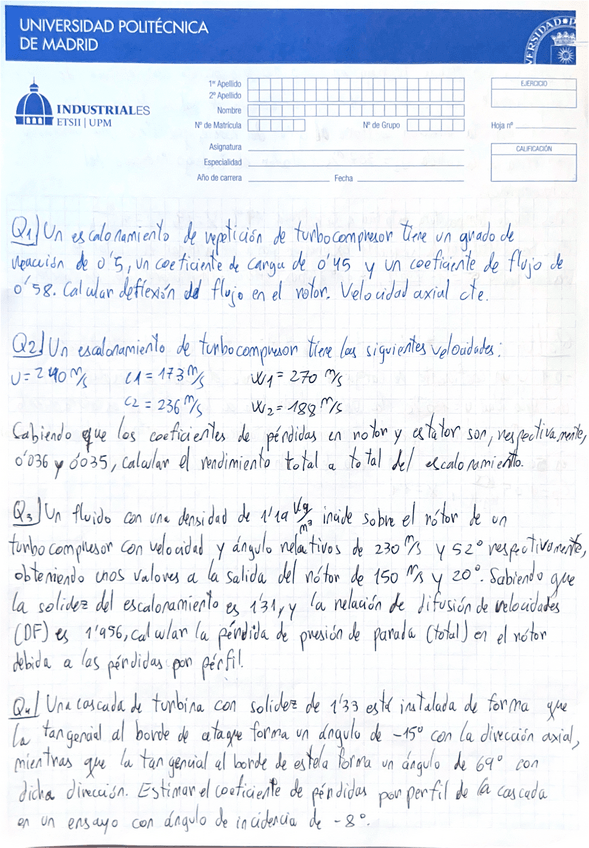 UNIVERSIDAD POLITÉCNICA
DE MADRID
INDUSTRIALES
ETSII | UPM
1º Apellido
2º Apellido
Nombre
Nº de Matrícula
Nº de Grupo
Asignatura
Especialidad
Año de carrera
Fecha
EJERCICIO
Hoja nº
CALIFICACIÓN
Q1) Un escalonamiento de repetición de turbocompresor tiene un grado de
reacción de 0'5, un coeficiente de carga de 0'45 y un coeficiente de flujo de
0'58. Calcular deflexión del flujo en el rotor. Velocidad axial cte.
Q2) Un escalonamiento de turbocompresor tiene las siguientes velocidades:
U=240 m/s c1 = 173 m/s W1 = 270 m/s
c2 = 236 m/s W2 = 188 m/s
Sabiendo que los coeficientes de pérdidas en rotor y estátor son, respectivamente,
0'036 y 0'035, calcular el rendimiento total a total del escalonamiento.
Q3) Un fluido con una densidad de 1'19 kg/m³ incide sobre el rótor de un
turbocompresor con velocidad y ángulo relativos de 230 m/s y 52º respectivamente,
obteniendo unos valores a la salida del rótor de 150 m/s y 20º. Sabiendo que
la solidez del escalonamiento es 1'31, y la relación de difusión de velocidades
(DF) es 1'956, calcular la pérdida de presión de parada (total) en el rótor
debida a las pérdidas por pérfil.
Q4) Una cascada de turbina con solidez de 1'33 está instalada de forma que
la tangencial al borde de ataque forma un ángulo de -15º con la dirección axial,
mientras que la tangencial al borde de estela forma un ángulo de 69º con
dicha dirección. Estimar el coeficiente de pérdidas por perfil de la cascada
en un ensayo con ángulo de incidencia de -8º.